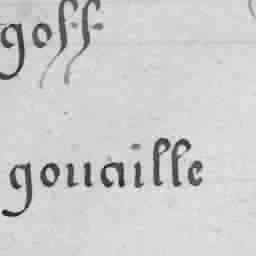 goff
gouaille